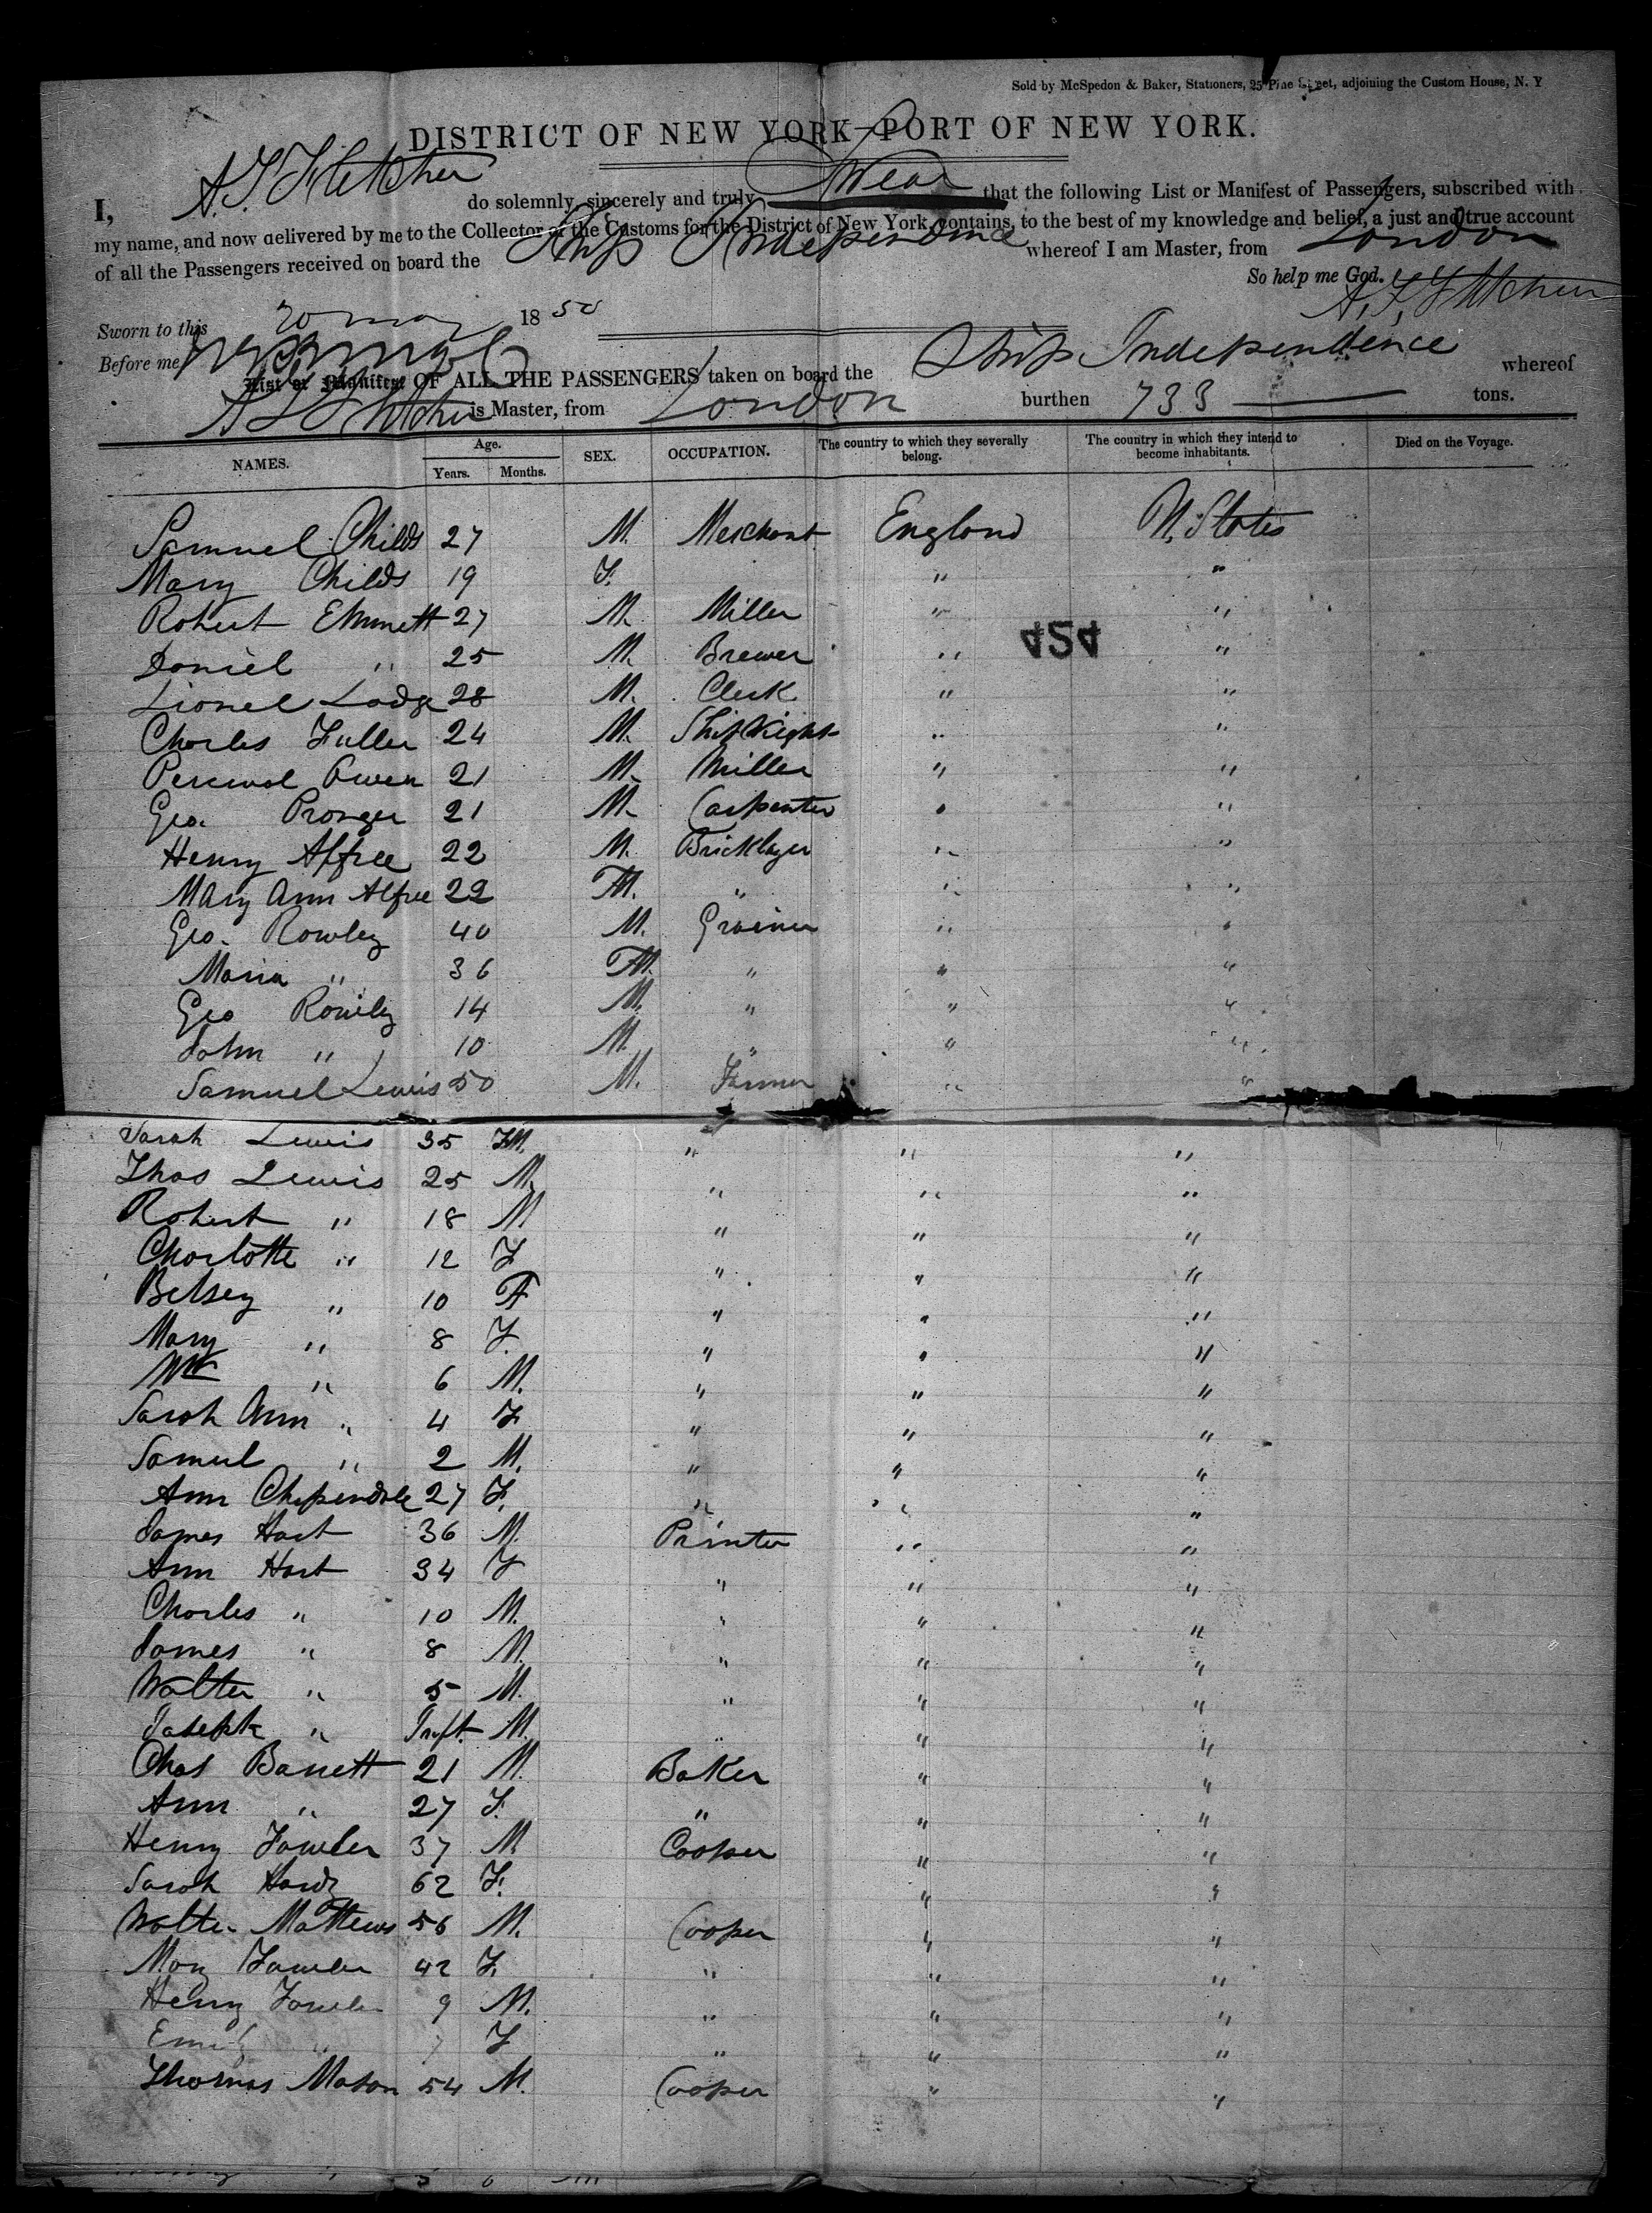 Sold by McSpedon & Baker, Stationers, 25 Pine Street, adjoining the Custom House, N. Y
DISTRICT OF NEW YORK—PORT OF NEW YORK.
I, A. T. Fletcher do solemnly, sincerely and truly swear that the following List or Manifest of Passengers, subscribed with
my name, and now delivered by me to the Collector of the Customs for the District of New York, contains, to the best of my knowledge and belief, a just and true account
of all the Passengers received on board the Ship Independence whereof I am Master, from London
So help me God.
A. T. Fletcher
Sworn to this 20 May 1850
Before me
List or Manifest OF ALL THE PASSENGERS taken on board the Ship Independence whereof
A T Fletcher is Master, from London burthen 733 tons.
NAMES. Age. Years. Months. SEX. OCCUPATION. The country to which they severally belong. The country in which they intend to become inhabitants. Died on the Voyage.
Samuel Childs 27 M. Merchant England U. States
Mary Childs 19 F. " "
Robert Emmett 27 M. Miller " "
454
Daniel " 25 M. Brewer " "
Lionel Lodge 28 M. Clerk " "
Charles Fuller 24 M. " "
Percival Owen 21 M. Miller " "
Geo. Pronger 21 M. Carpenter " "
Henry Affree 22 M. Bricklayer " "
Mary Ann Alfree 22 FM. " " "
Geo. Rowley 40 M. Grainer " "
Maria " 36 FM. " " "
Geo Rowley 14 M. " " "
John " 10 M " " "
Samuel Lewis 50 M. Farmer " "
Sarah Lewis 35 FM. " " "
Thos Lewis 25 M. " " "
Robert " 18 M " " "
Charlotte " 12 F " " "
Betsey " 10 F " " "
Mary " 8 F. " " "
Wm " 6 M. " " "
Sarah Ann " 4 F " " "
Samuel " 2 M. " " "
Ann Chipendale 27 F. " " "
James Hart 36 M. Printer " "
Ann Hart 34 F " " "
Charles " 10 M. " " "
James " 8 M. " " "
Walter " 5 M. " " "
Joseph " Inft. M. " " "
Chas Barrett 21 M. Baker " "
Ann " 27 F. " " "
Henry Fowler 37 M Cooper " "
Sarah Hardy 62 F. " "
Walter Matthews 56 M. Cooper " "
Mary Fowler 42 F. " " "
Henry Fowler 9 M. " " "
Emily " 7 F " " "
Thomas Mason 54 M. Cooper " "